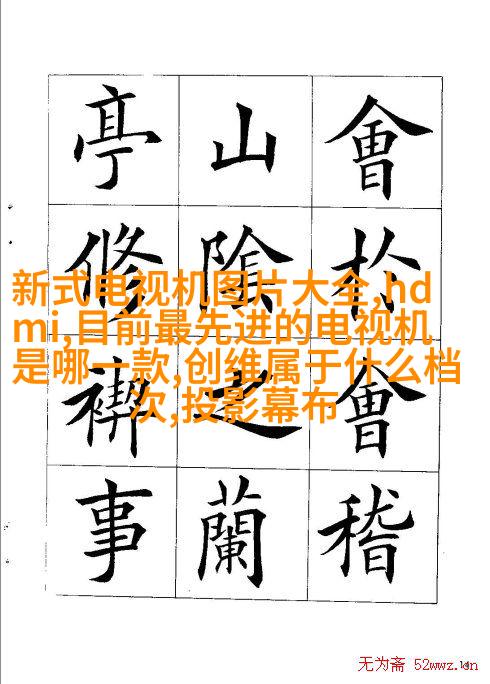 會於會稽
山陰之蘭
亭脩禊事
新式电视机图片大全,hd
mi,目前最先进的电视机
是哪一款,创维属于什么档
次,投影幕布
无为斋 52wwz.cn